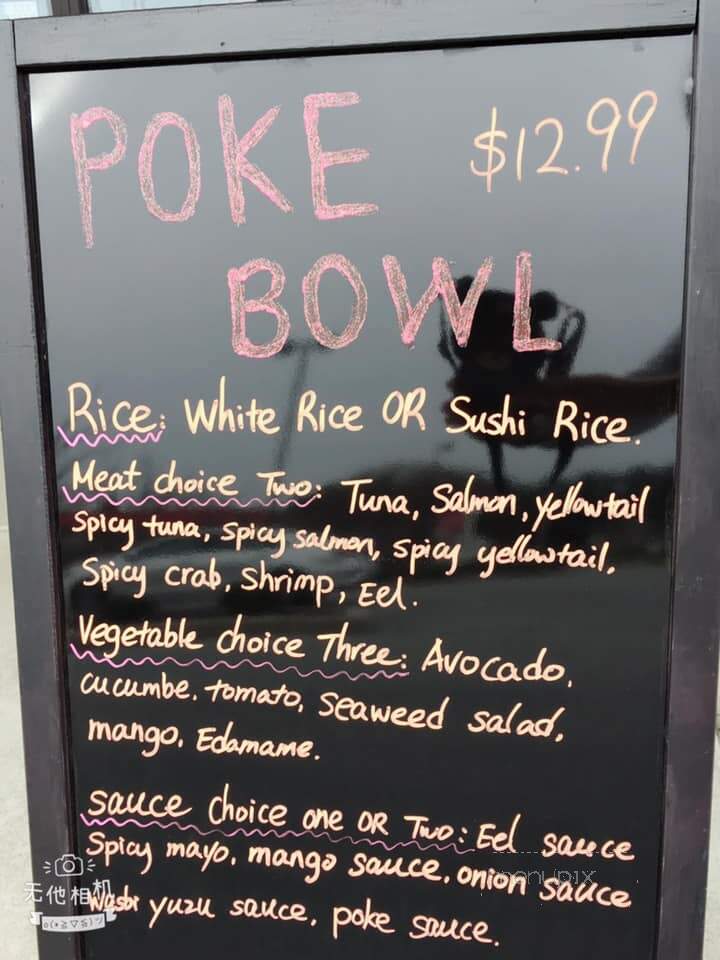 POKE $12.99
BOWL
Rice: White Rice OR Sushi Rice.
Meat choice Two: Tuna, Salmon, yellowtail
Spicy tuna, spicy salmon, spicy yellowtail,
Spicy crab, shrimp, Eel.
Vegetable choice Three: Avocado,
cucumbe, tomato, seaweed salad,
mango, Edamame.
sauce choice one OR Two: Eel sauce
Spicy mayo, mango sauce, onion sauce
yuzu sauce, poke sauce.
无他相机
menupix